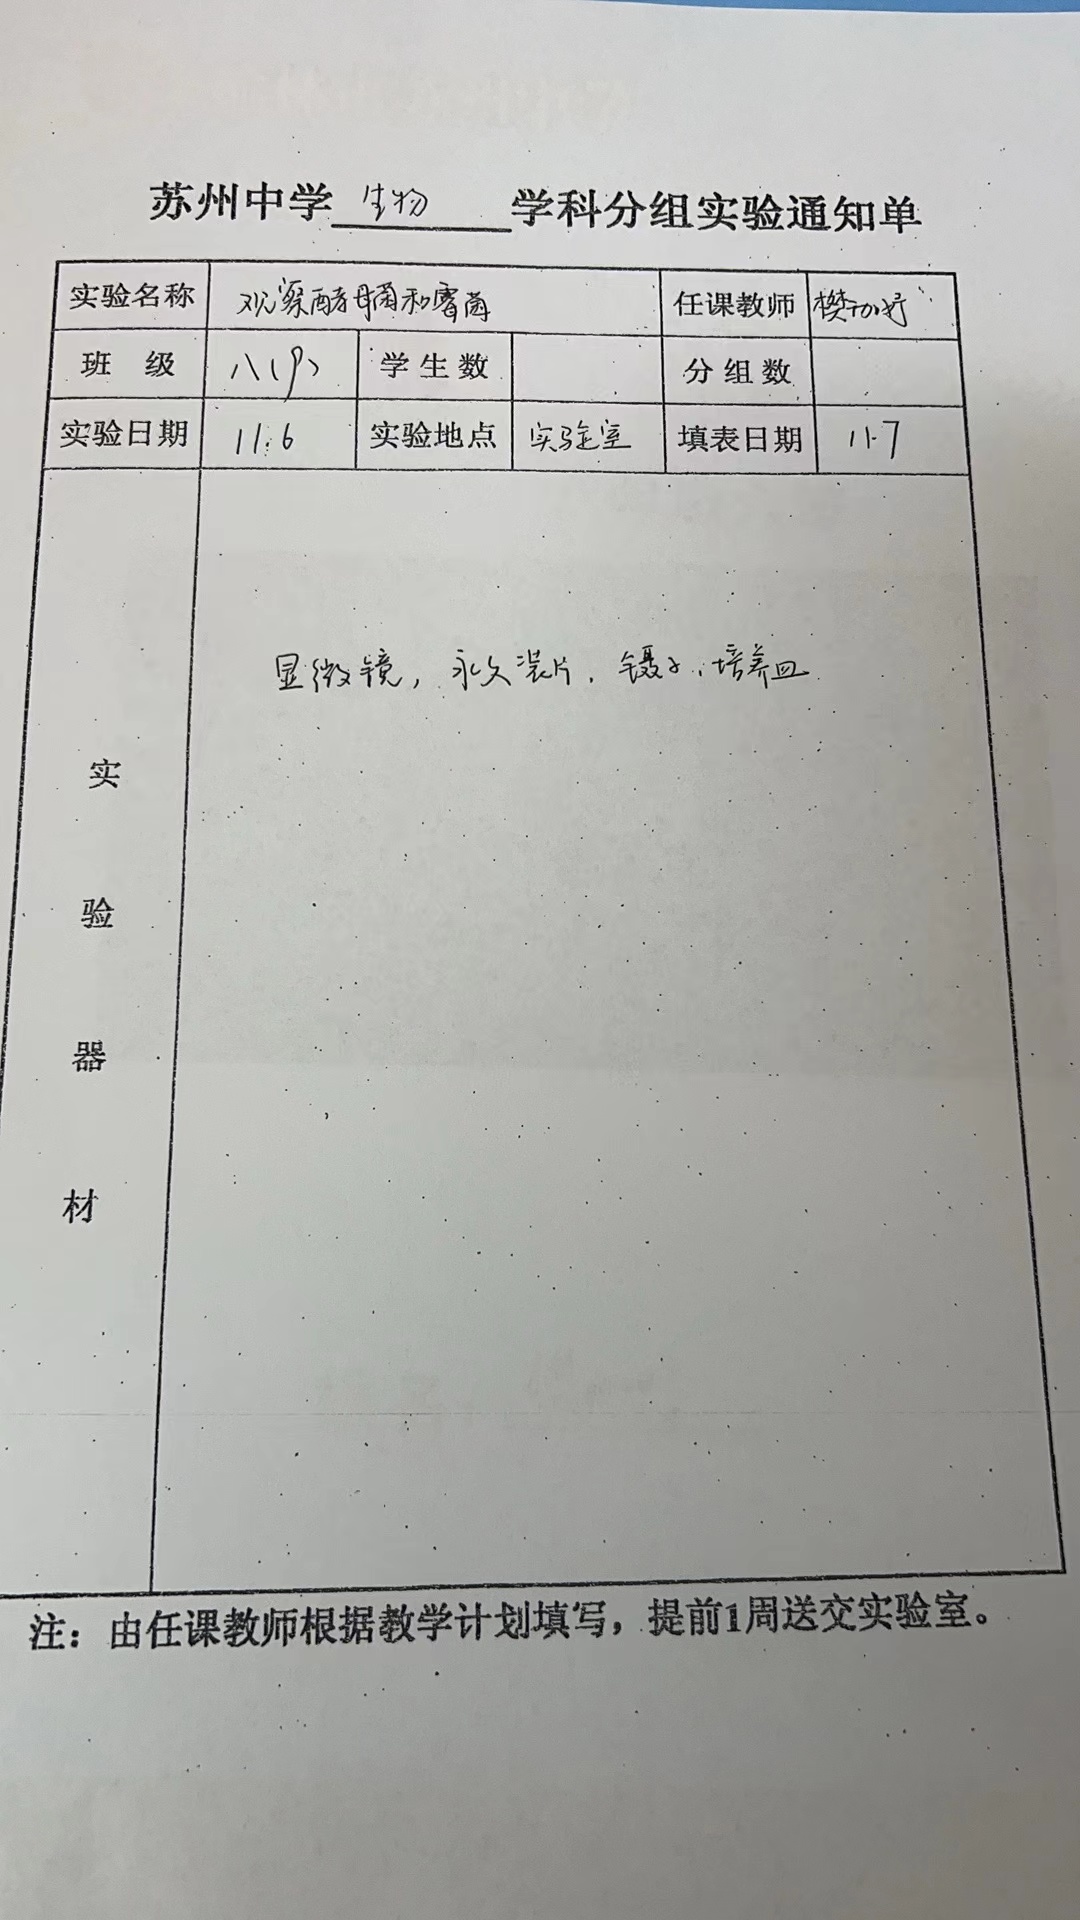 苏州中学 生物 学科分组实验通知单
实验名称 观察酵母菌和霉菌 任课教师
班 级 八(9) 学生数 分组数
实验日期 11.6 实验地点 实验室 填表日期 11.7
显微镜, 永久装片. 镊子. 培养皿
实
验
器
材
注：由任课教师根据教学计划填写，提前1周送交实验室。